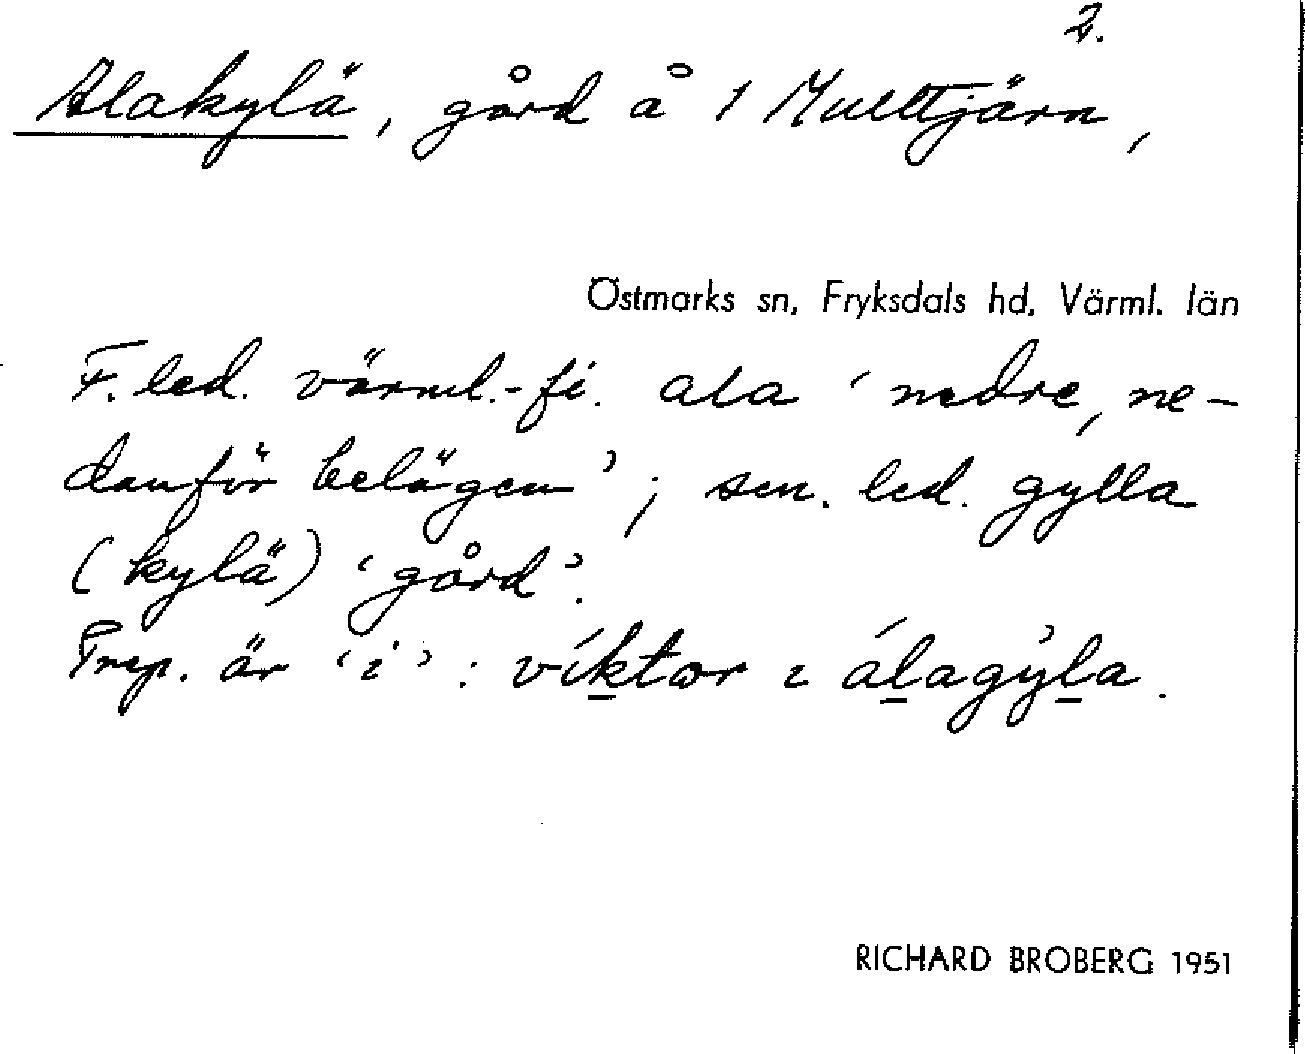 2.
Alakylä, gård å 1 Mulltjärn,
Östmarks sn, Fryksdals hd, Värml. län
F. led. värml.-fi. ala 'nedre, ne-
danför belägen'; sen. led. gylla
(kylä) 'gård'.
Prep. är 'i': víktor ɩ álagỳla.
RICHARD BROBERG 1951